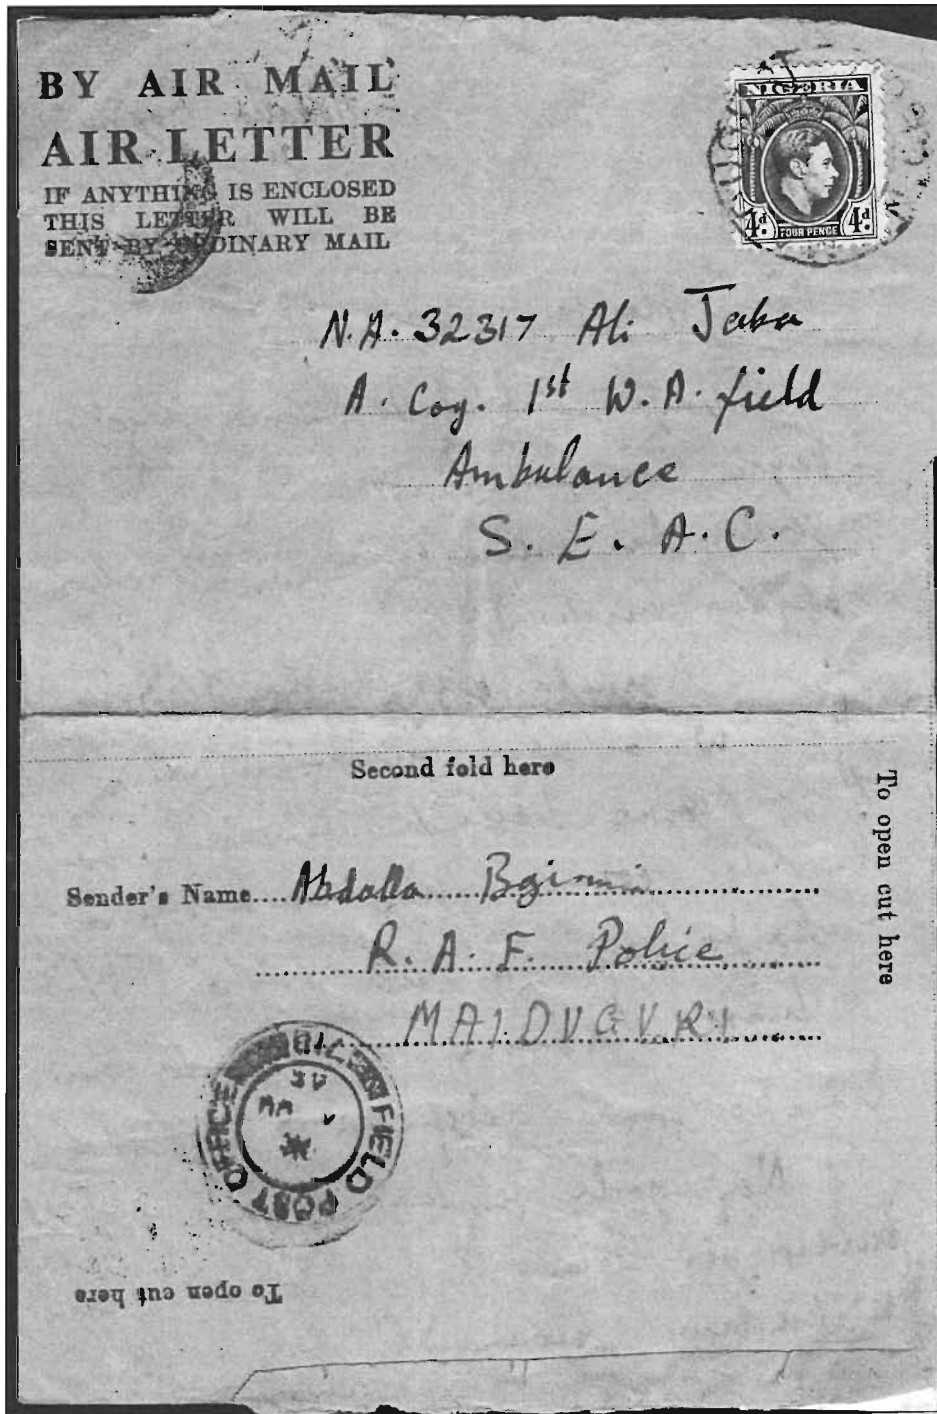 BY AIR MAIL
AIR LETTER
IF ANYTHING IS ENCLOSED
THIS LETTER WILL BE
SENT BY ORDINARY MAIL
NIGERIA
4d FOUR PENCE 4d
N.A. 32317 Ali Jaba
A. Coy. 1st W.A. field
Ambulance
S. E. A. C.
Second fold here
To open cut here
Sender's Name Abdalla
R. A. F. Police
MAIDUGURI
FIELD POST OFFICE
To open cut here